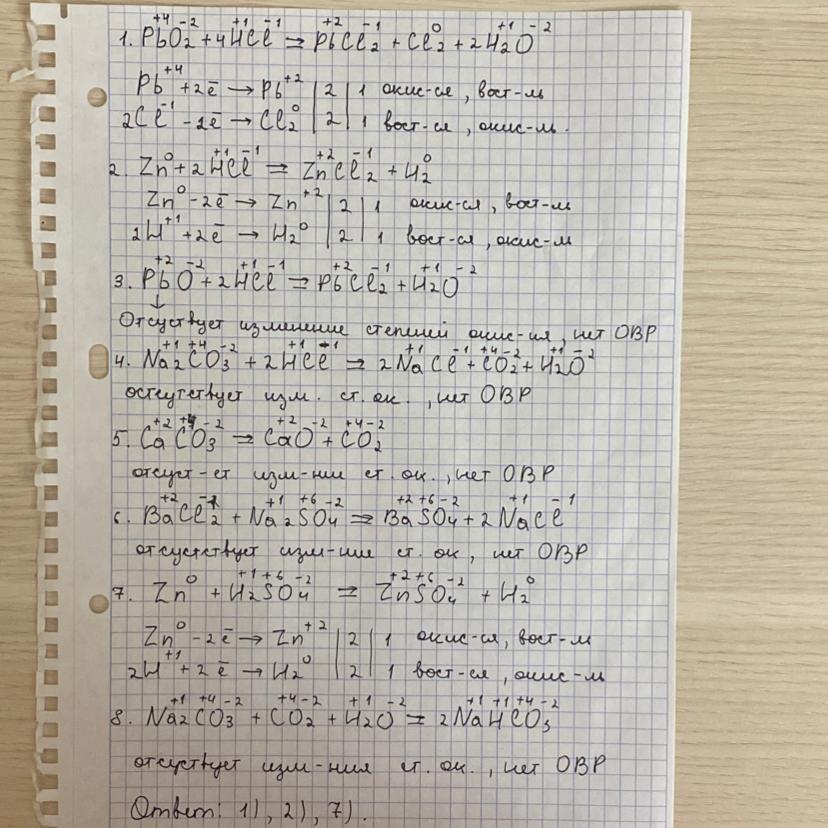 1. Pb⁺⁴O₂⁻² + 4H⁺¹Cl⁻¹ = Pb⁺²Cl₂⁻¹ + Cl₂⁰ + 2H₂⁺¹O⁻²
Pb⁺⁴ + 2ē → Pb⁺² | 2 | 1 окис-ся, вост-ль
2Cl⁻¹ - 2ē → Cl₂⁰ | 2 | 1 вост-ся, окис-ль.
2. Zn⁰ + 2H⁺¹Cl⁻¹ = Zn⁺²Cl₂⁻¹ + H₂⁰
Zn⁰ - 2ē → Zn⁺² | 2 | 1 окис-ся, вост-ль
2H⁺¹ + 2ē → H₂⁰ | 2 | 1 вост-ся, окис-ль
3. Pb⁺²O⁻² + 2H⁺¹Cl⁻¹ = Pb⁺²Cl₂⁻¹ + H₂⁺¹O⁻²
↓
Отсуствует изменение степеней окис-ия, нет ОВР
4. Na₂⁺¹C⁺⁴O₃⁻² + 2H⁺¹Cl⁻¹ = 2Na⁺¹Cl⁻¹ + C⁺⁴O₂⁻² + H₂⁺¹O⁻²
остсутствует изм. ст. ок., нет ОВР
5. Ca⁺²C⁺⁴O₃⁻² = Ca⁺²O⁻² + C⁺⁴O₂⁻²
отсуст-ет изм-нии ст. ок., нет ОВР
6. Ba⁺²Cl₂⁻¹ + Na₂⁺¹S⁺⁶O₄⁻² = Ba⁺²S⁺⁶O₄⁻² + 2Na⁺¹Cl⁻¹
отсуствует изм-ние ст. ок, нет ОВР
7. Zn⁰ + H₂⁺¹S⁺⁶O₄⁻² = Zn⁺²S⁺⁶O₄⁻² + H₂⁰
Zn⁰ - 2ē → Zn⁺² | 2 | 1 окис-ся, вост-ль
2H⁺¹ + 2ē → H₂⁰ | 2 | 1 вост-ся, окис-ль
8. Na₂⁺¹C⁺⁴O₃⁻² + C⁺⁴O₂⁻² + H₂⁺¹O⁻² = 2Na⁺¹H⁺¹C⁺⁴O₃⁻²
отсуствует изм-ния ст. ок., нет ОВР
Ответ: 1), 2), 7).